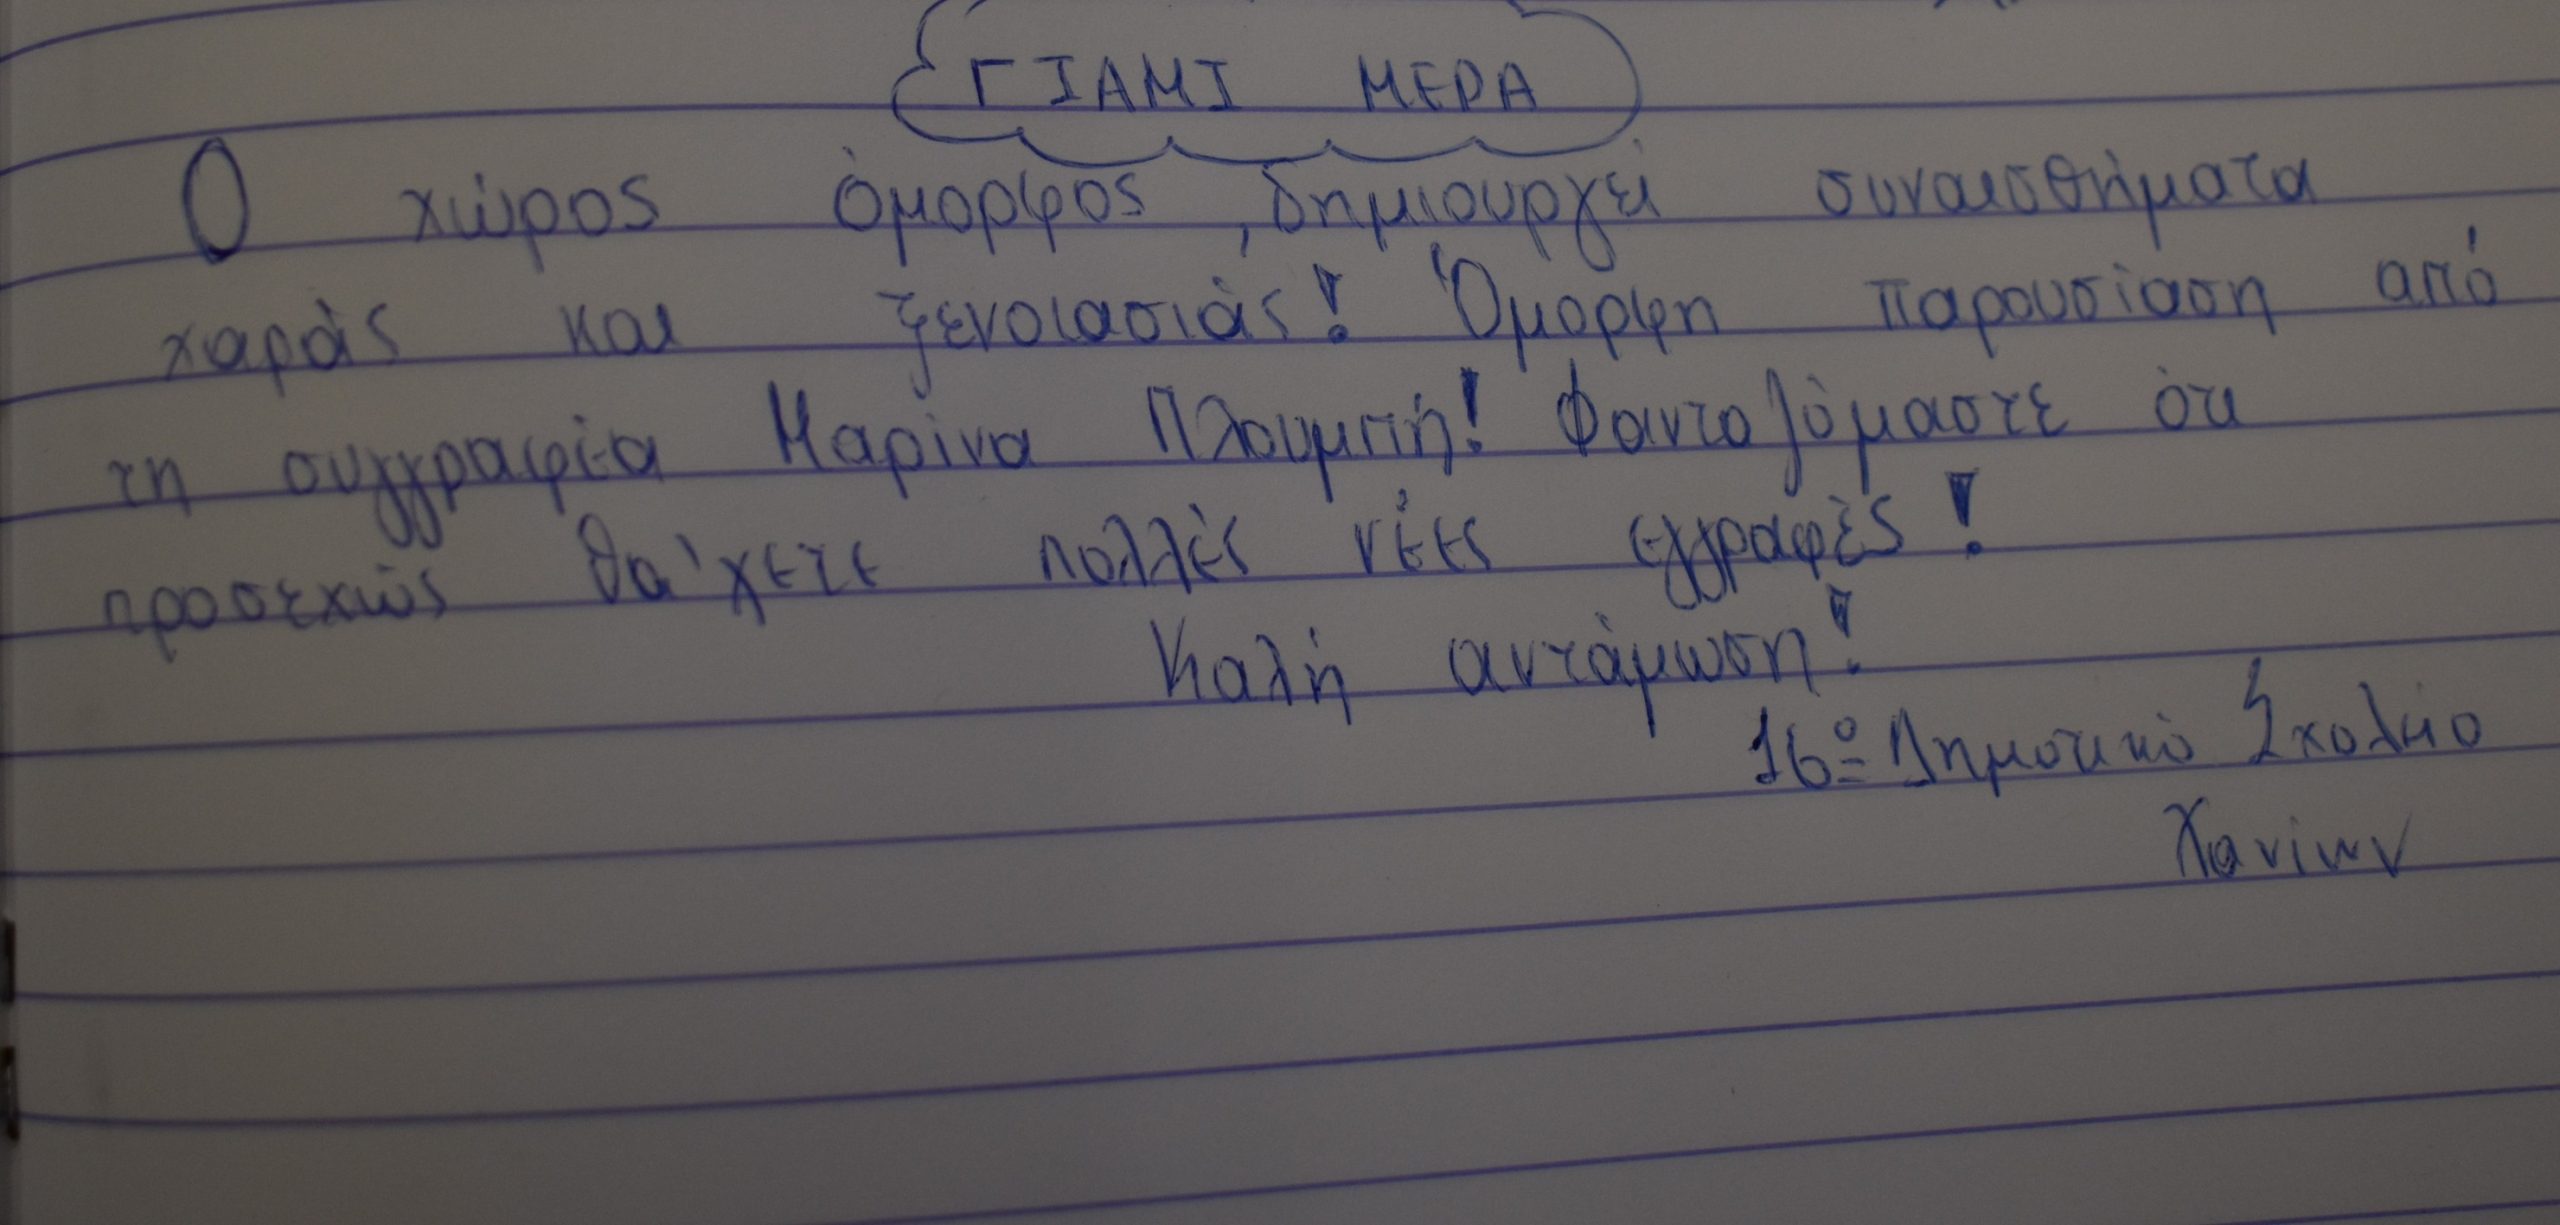 ΓΙΑΜΙ ΜΕΡΑ
Ο χώρος όμορφος, δημιουργεί συναισθήματα
χαράς και ξενοιασιάς! Όμορφη παρουσίαση από
τη συγγραφέα Μαρίνα Πλουμπή! Φανταζόμαστε ότι
προσεχώς θα 'χετε πολλές νέες εγγραφές!
Καλή αντάμωση!
16º Δημοτικό Σχολείο
Χανίων